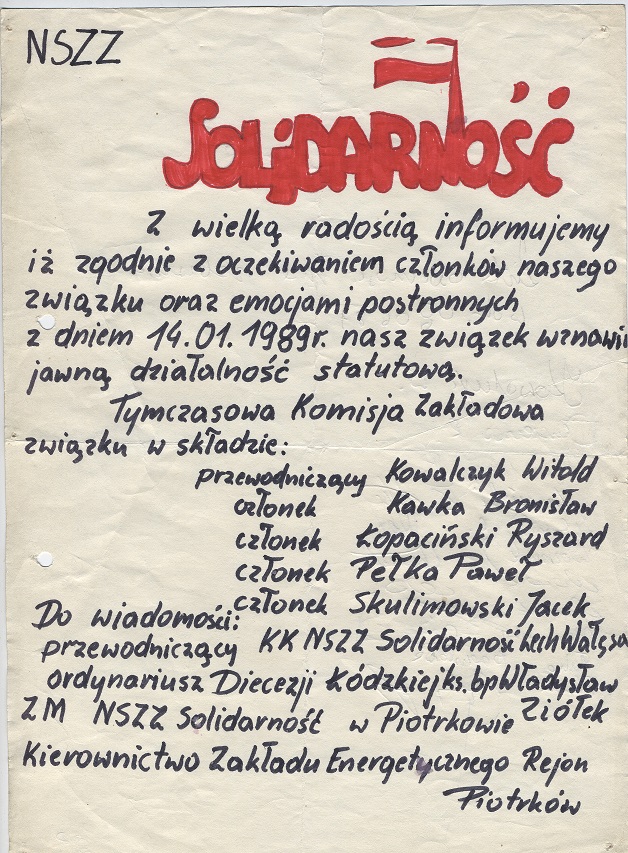 NSZZ
SOLiDARNOŚĆ
Z wielką radością informujemy
iż zgodnie z oczekiwaniem członków naszego
związku oraz emocjami postronnych
z dniem 14.01.1989r. nasz związek wznawia
jawną działalność statutową.
Tymczasowa Komisja Zakładowa
związku w składzie:
przewodniczący Kowalczyk Witold
członek Kawka Bronisław
członek Łopaciński Ryszard
członek Pełka Paweł
członek Skulimowski Jacek
Do wiadomości:
przewodniczący KK NSZZ Solidarność Lech Wałęsa
ordynariusz Diecezji Łódzkiej ks. bp Władysław
Ziółek
ZM NSZZ Solidarność w Piotrkowie
Kierownictwo Zakładu Energetycznego Rejon
Piotrków